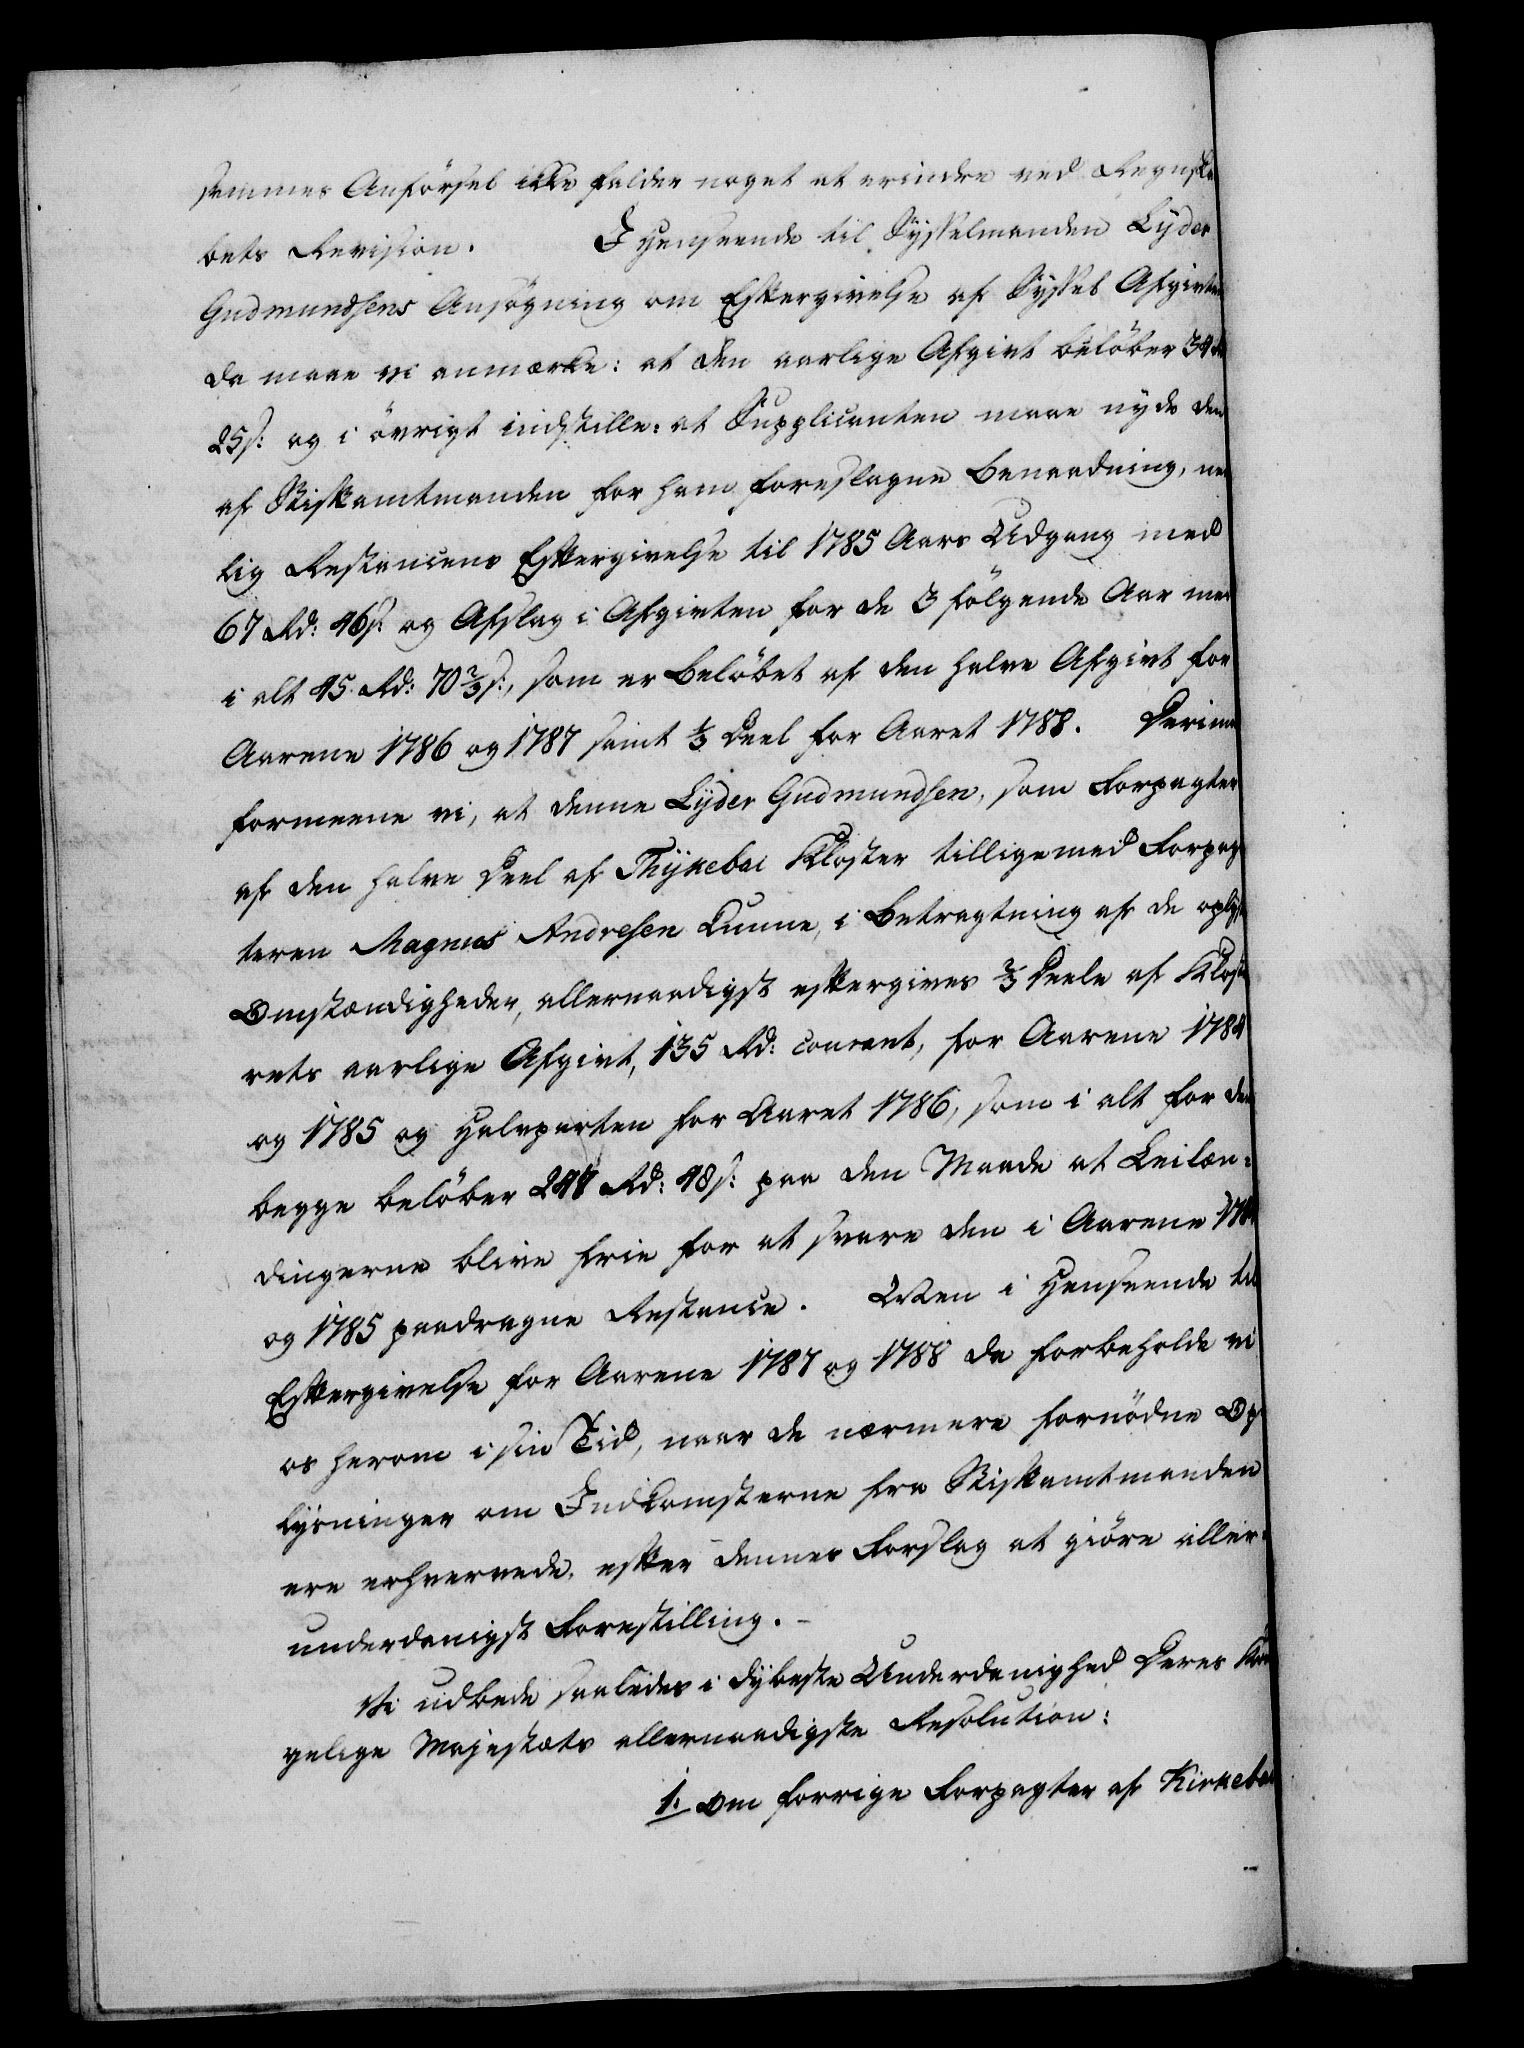 sammes Anförsel ikke falder noget at erindre ved Regnska
bets Revision. I Henseende til Sysselmanden Lyder
Gudmundsens Ansögning om Eftergivelse af Syssel Afgivten
da maae vi anmærke: at den aarlige Afgivt belöber 34
25 s: og i övrigt indstille: at Supplicanten maae nyde den
af Stiftamtmanden for ham foreslagne Benaadning, nem
lig Restancens Eftergivelse til 1785 Aars Udgang med
67 Rd: 46 s: og Afslag i Afgivten for de 3 fölgende Aar med
i alt 45 Rd: 70 2/3 s:, som er belöbet af den halve Afgivt for
Aarene 1786 og 1787 samt 1/3 Deel for Aaret 1788. Derimod
formeene vi, at denne Lyder Gudmundsen, som Forpagter
af den halve Deel af Thykebai Kloster tilligemed Forpag
teren Magnus Andresen kunne, i Betragtning af de oplyste
Omstændigheder, allernaadigst eftergives 2/3 Deele af Kloste
rets aarlige Afgivt, 135 Rd: courant, for Aarene 1784
og 1785 og Halvparten for Aaret 1786, som i alt for dem
begge belöber 247 Rd: 48 s: paa den Maade at Leilæn-
dingerne blive frie for at svare den i Aarene 1784
og 1785 paadragne Restance. Men i Henseende til
Eftergivelse for Aarene 1787 og 1788 da forbeholde vi
os herom i sin Tid, naar de nærmere fornödne Op
lysninger om Indkomsterne fra Stiftamtmanden
ere erhvervede, efter dennes Forslag at giöre aller-
underdanigst Forestilling. -
Vi udbede saaledes i dybeste Underdanighed Deres Kon
gelige Majestæts allernaadigste Resolution:
1: Om forrige Forpagter af Kirkebai